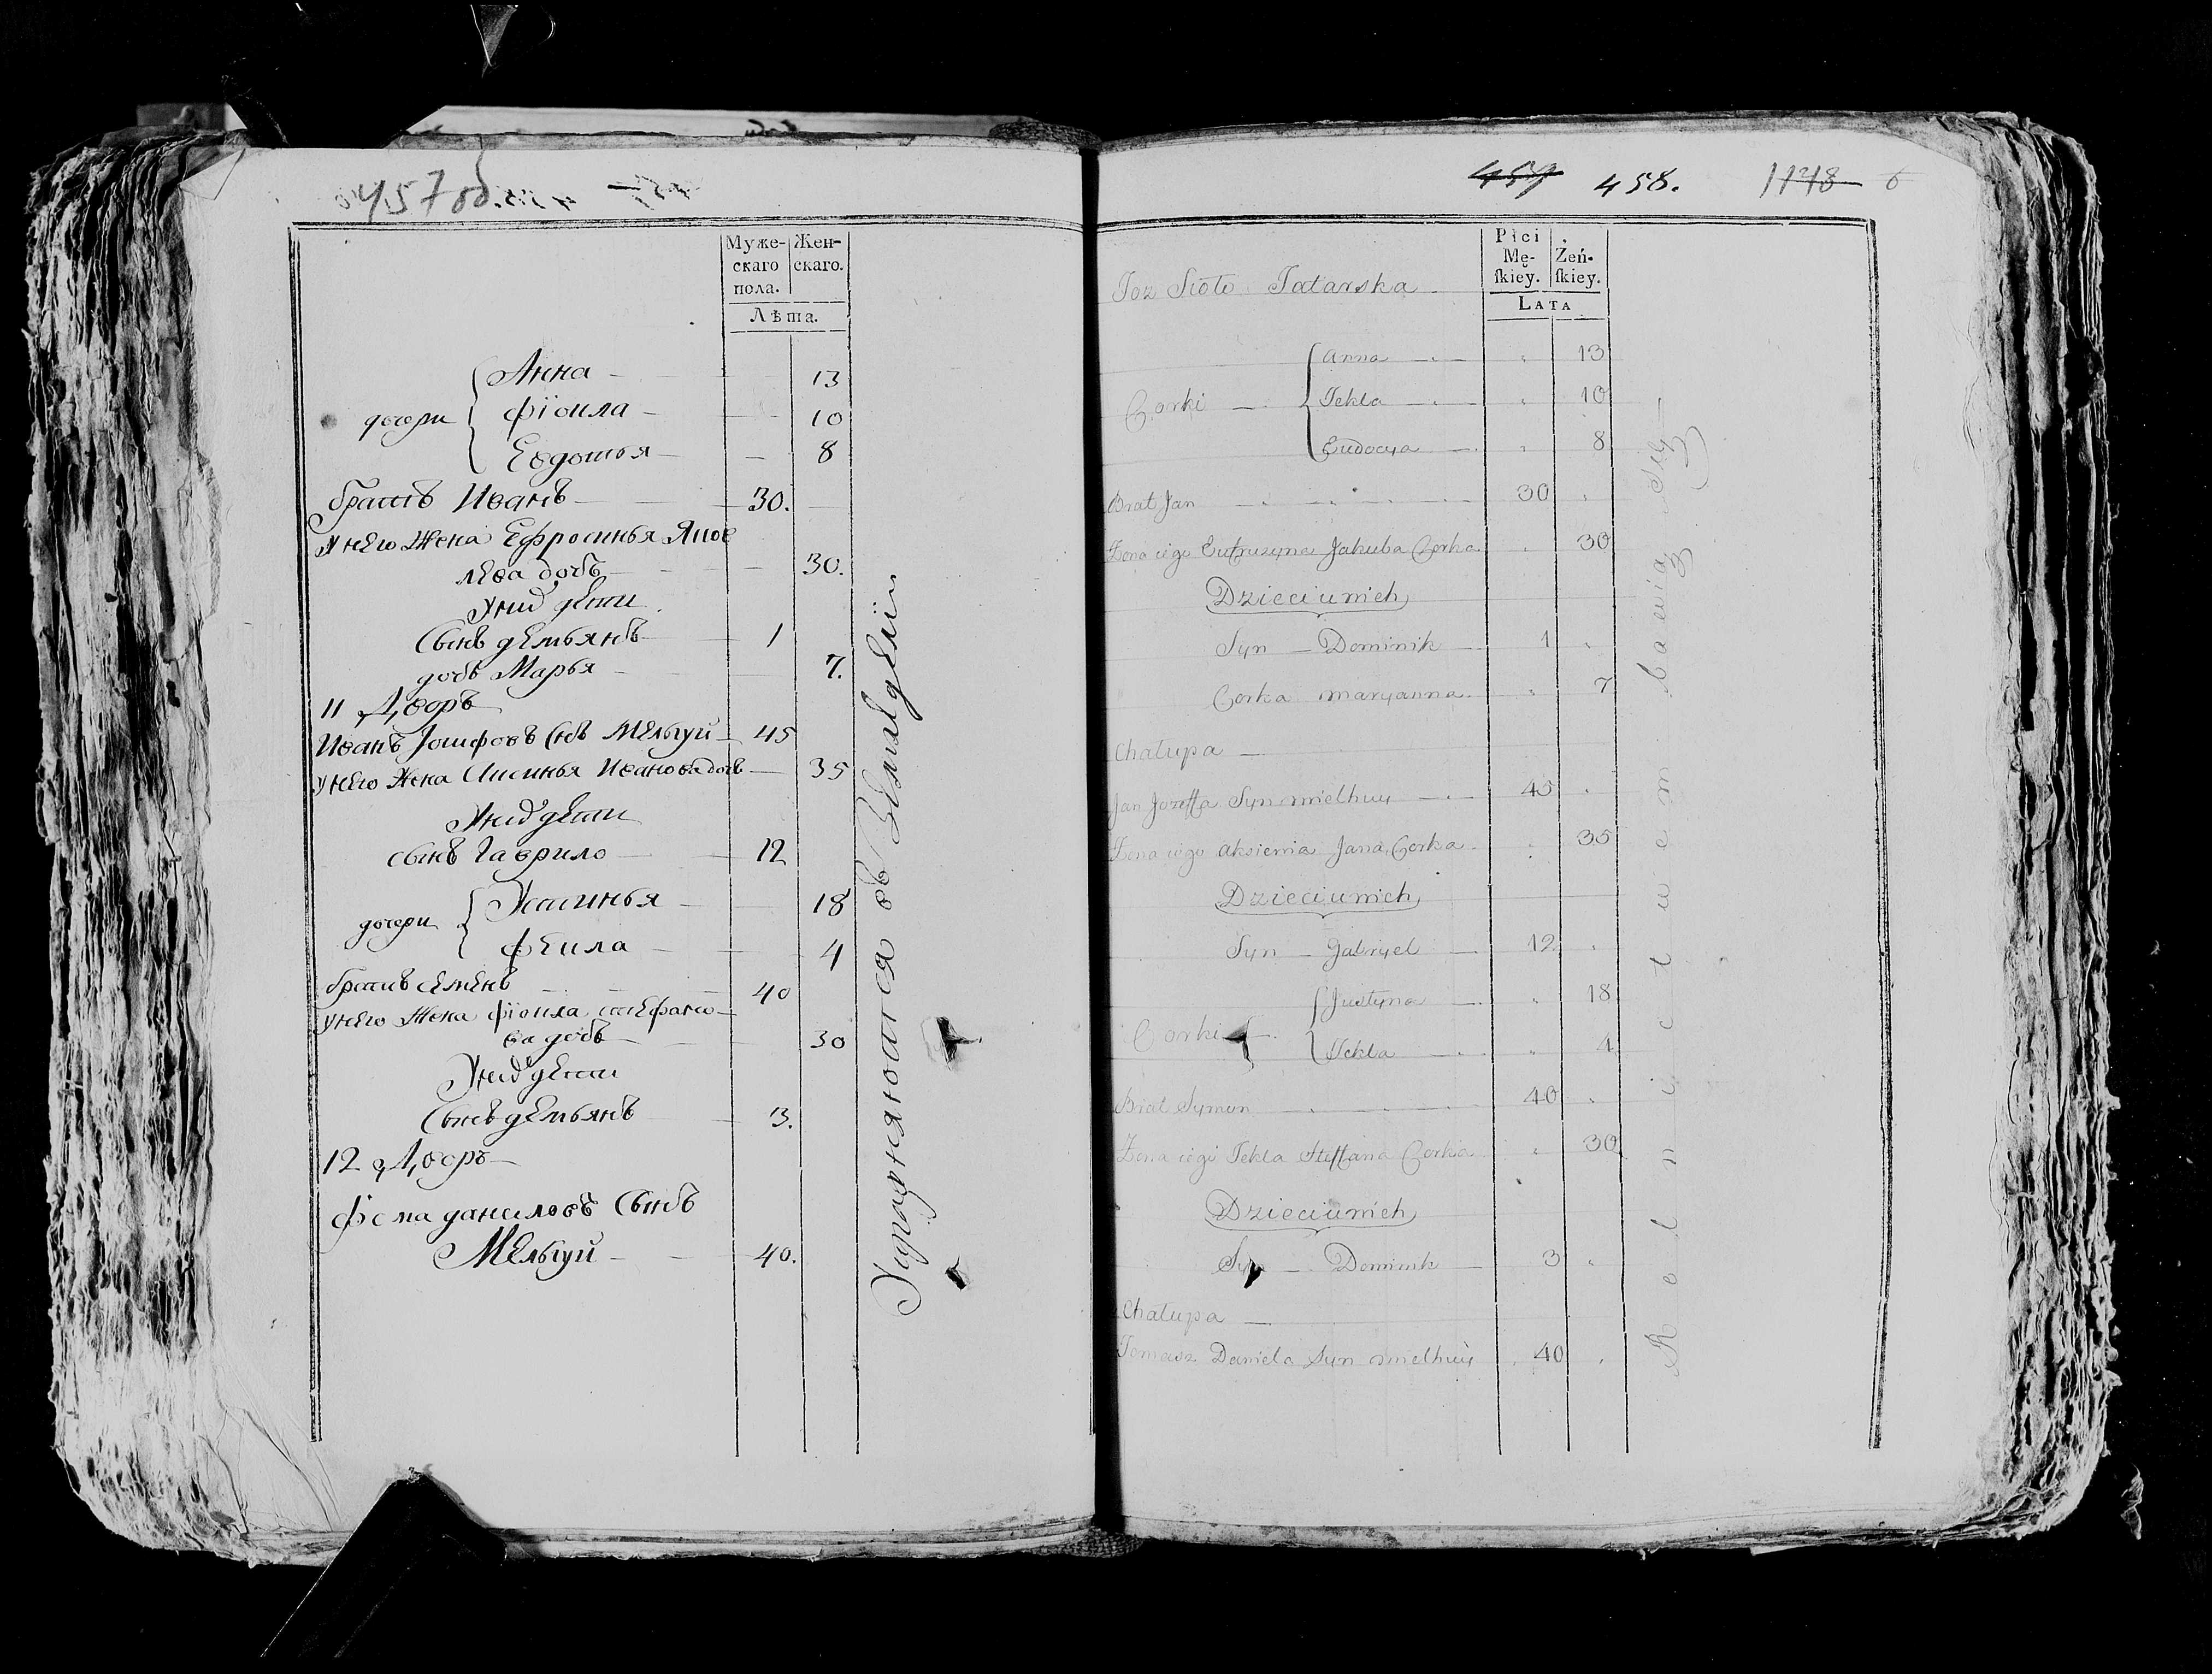 457 об.
Муже-
скаго
пола.
Жен-
скаго.
Лѣта.
Анна 13
дочери Фіокла 10
Евдотья 8
братъ Иванъ 30.
у нЕго Жена Ефросинья Яков
лЕва дочь 30.
У нид дЕти
Сынъ дЕмьянъ 1
дочь Марья 7.
11 Дворъ
Иванъ Іосифовъ Снъ МЕльгуй 45
у нЕго Жена Аксинья Иванова дочь 35
У нид дЕти
сынъ Гаврило 12
Устинья 18
дочери
фЕкла 4
братъ сЕмЕнъ 40
у нЕго Жена фіокла стЕфано
ва дочь 30
У нид дЕти
Сынъ дЕмьянъ 3.
12 Дворъ
фома даниловъ Сынъ
МЕльгуй 40.
Упражняются въ ЗЕмлЕдЕлии
457 458. 1178 6
Płci
Mę-
ſkiey.
Żeń-
ſkiey.
Lata
Toż Sioło Tatarska
Anna 13
Corki Tekla 10
Eudocya 8
Brat Jan 30
Żona iego Eufruzyna Jakuba Corka 30
Dzieci u nich
Syn Dominik 1
Corka Maryanna 7
Chałupa
Jan Jozeffa Syn Mielhuy 45
Żona iego Aksienia Jana Corka 35
Dzieci u nich
Syn Gabryel 12
Justyna 18
Corki
Tekla 4
Brat Symon 40
Żona iego Tekla Steffana Corka 30
Dzieci u nich
Syn Dominik 3
Chałupa
Tomasz Daniela Syn Mielhuy 40
Rolnictwem bawią się